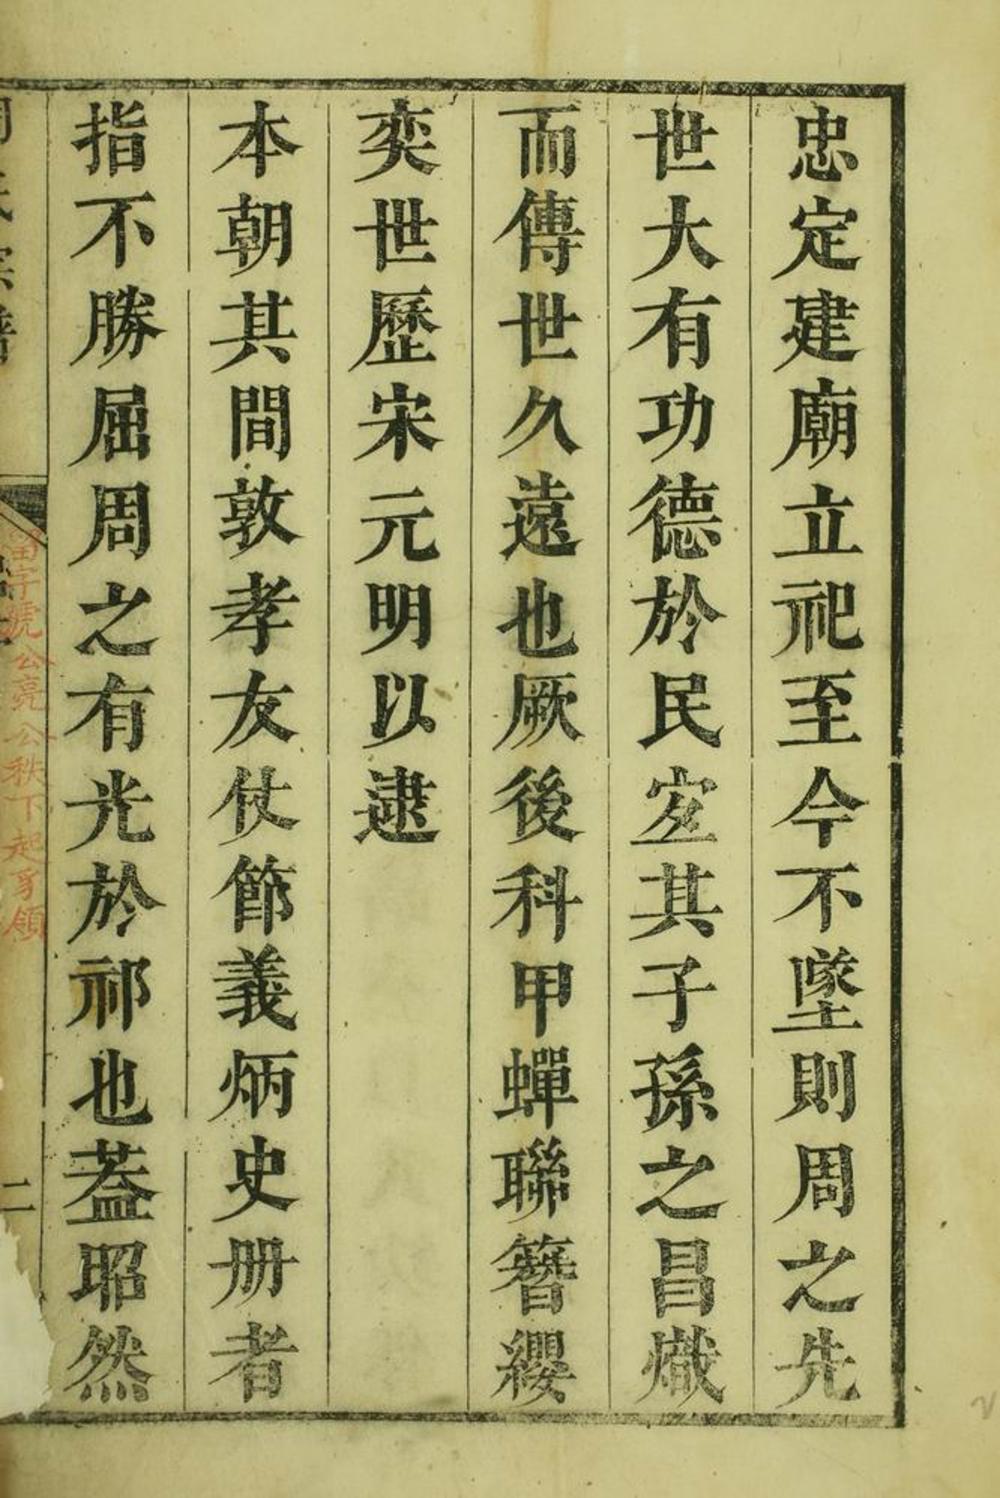 忠定建廟立祀至今不墜則周之先
世大有功德於民宐其子孫之昌熾
而傳世久遠也厥後科甲蟬聯簪纓
奕世歷宋元明以逮
本朝其間敦孝友仗節義炳史册者
指不勝屈周之有光於祁也葢昭然
留字號公亮公秩下起豸領
二